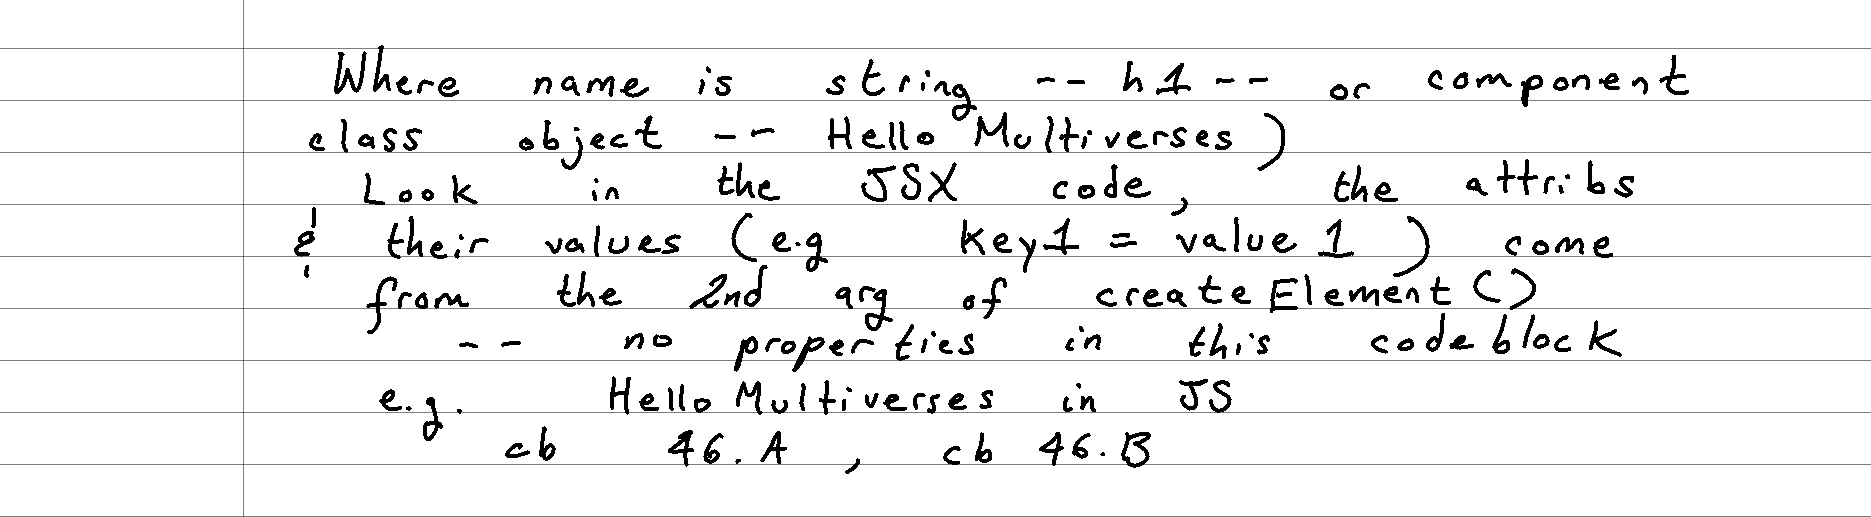 Where name is string -- h1 -- or component
class object -- Hello Multiverses)
Look in the JSX code, the attribs
& their values (e.g key1 = value 1) come
from the 2nd arg of createElement()
-- no properties in this codeblock
e.g. Hello Multiverses in JS
cb 46.A, cb 46.B